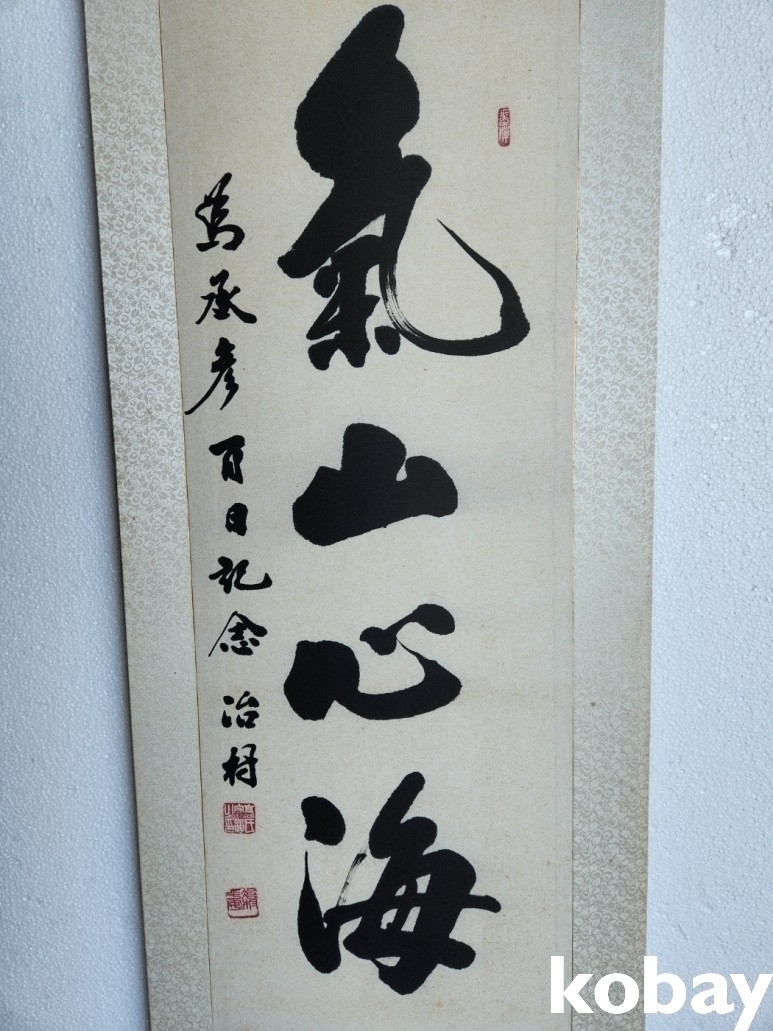 氣山心海
爲承彦百日記念 治村
kobay